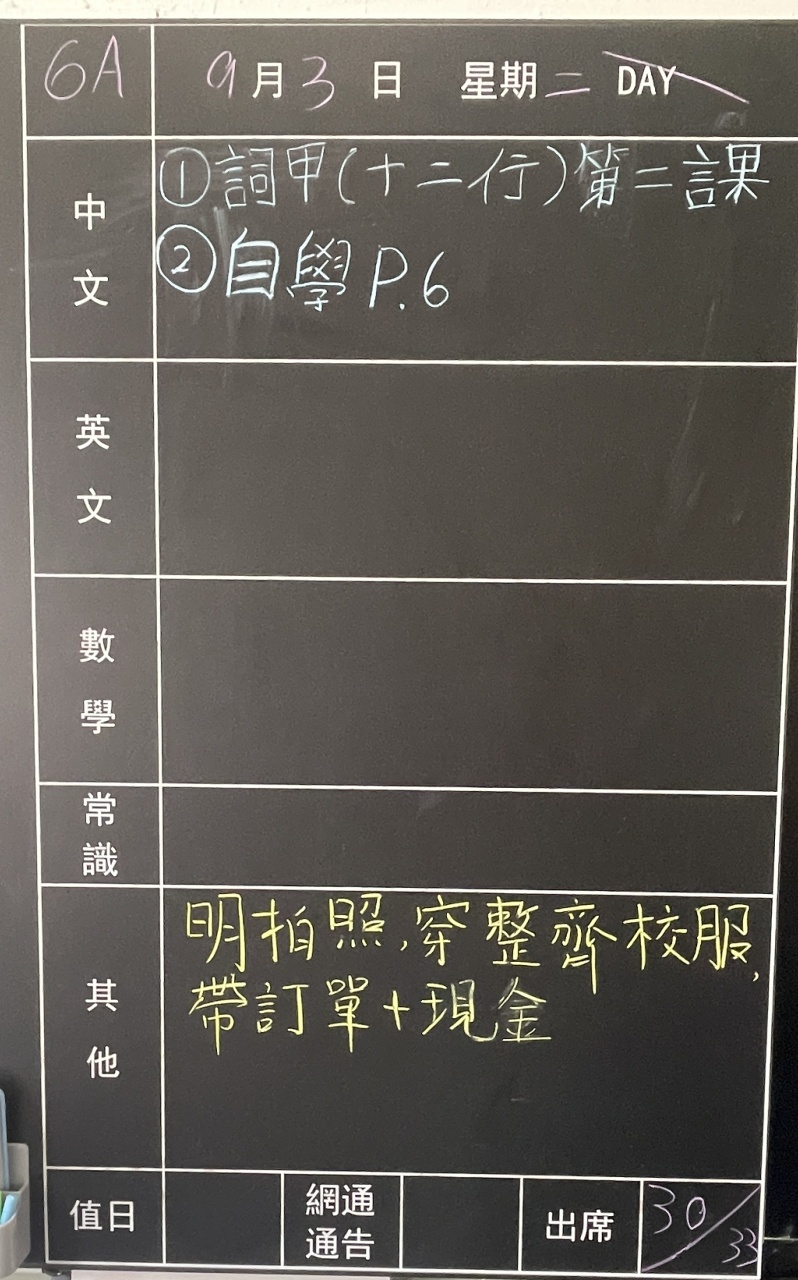 6A 9月3日 星期二 DAY
中文 ①詞甲(十二行)第二課
②自學P.6
英文
數學
常識
其他 明拍照,穿整齊校服,
帶訂單+現金
值日 網通通告 出席 30/33